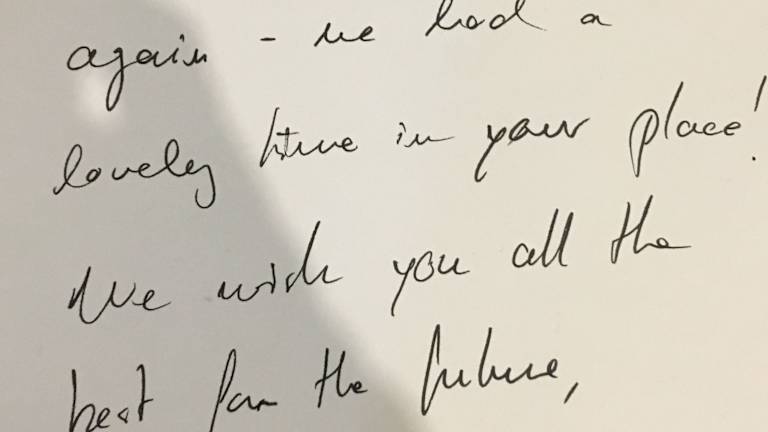 again - we had a
lovely time in your place!
We wish you all the
best for the future,